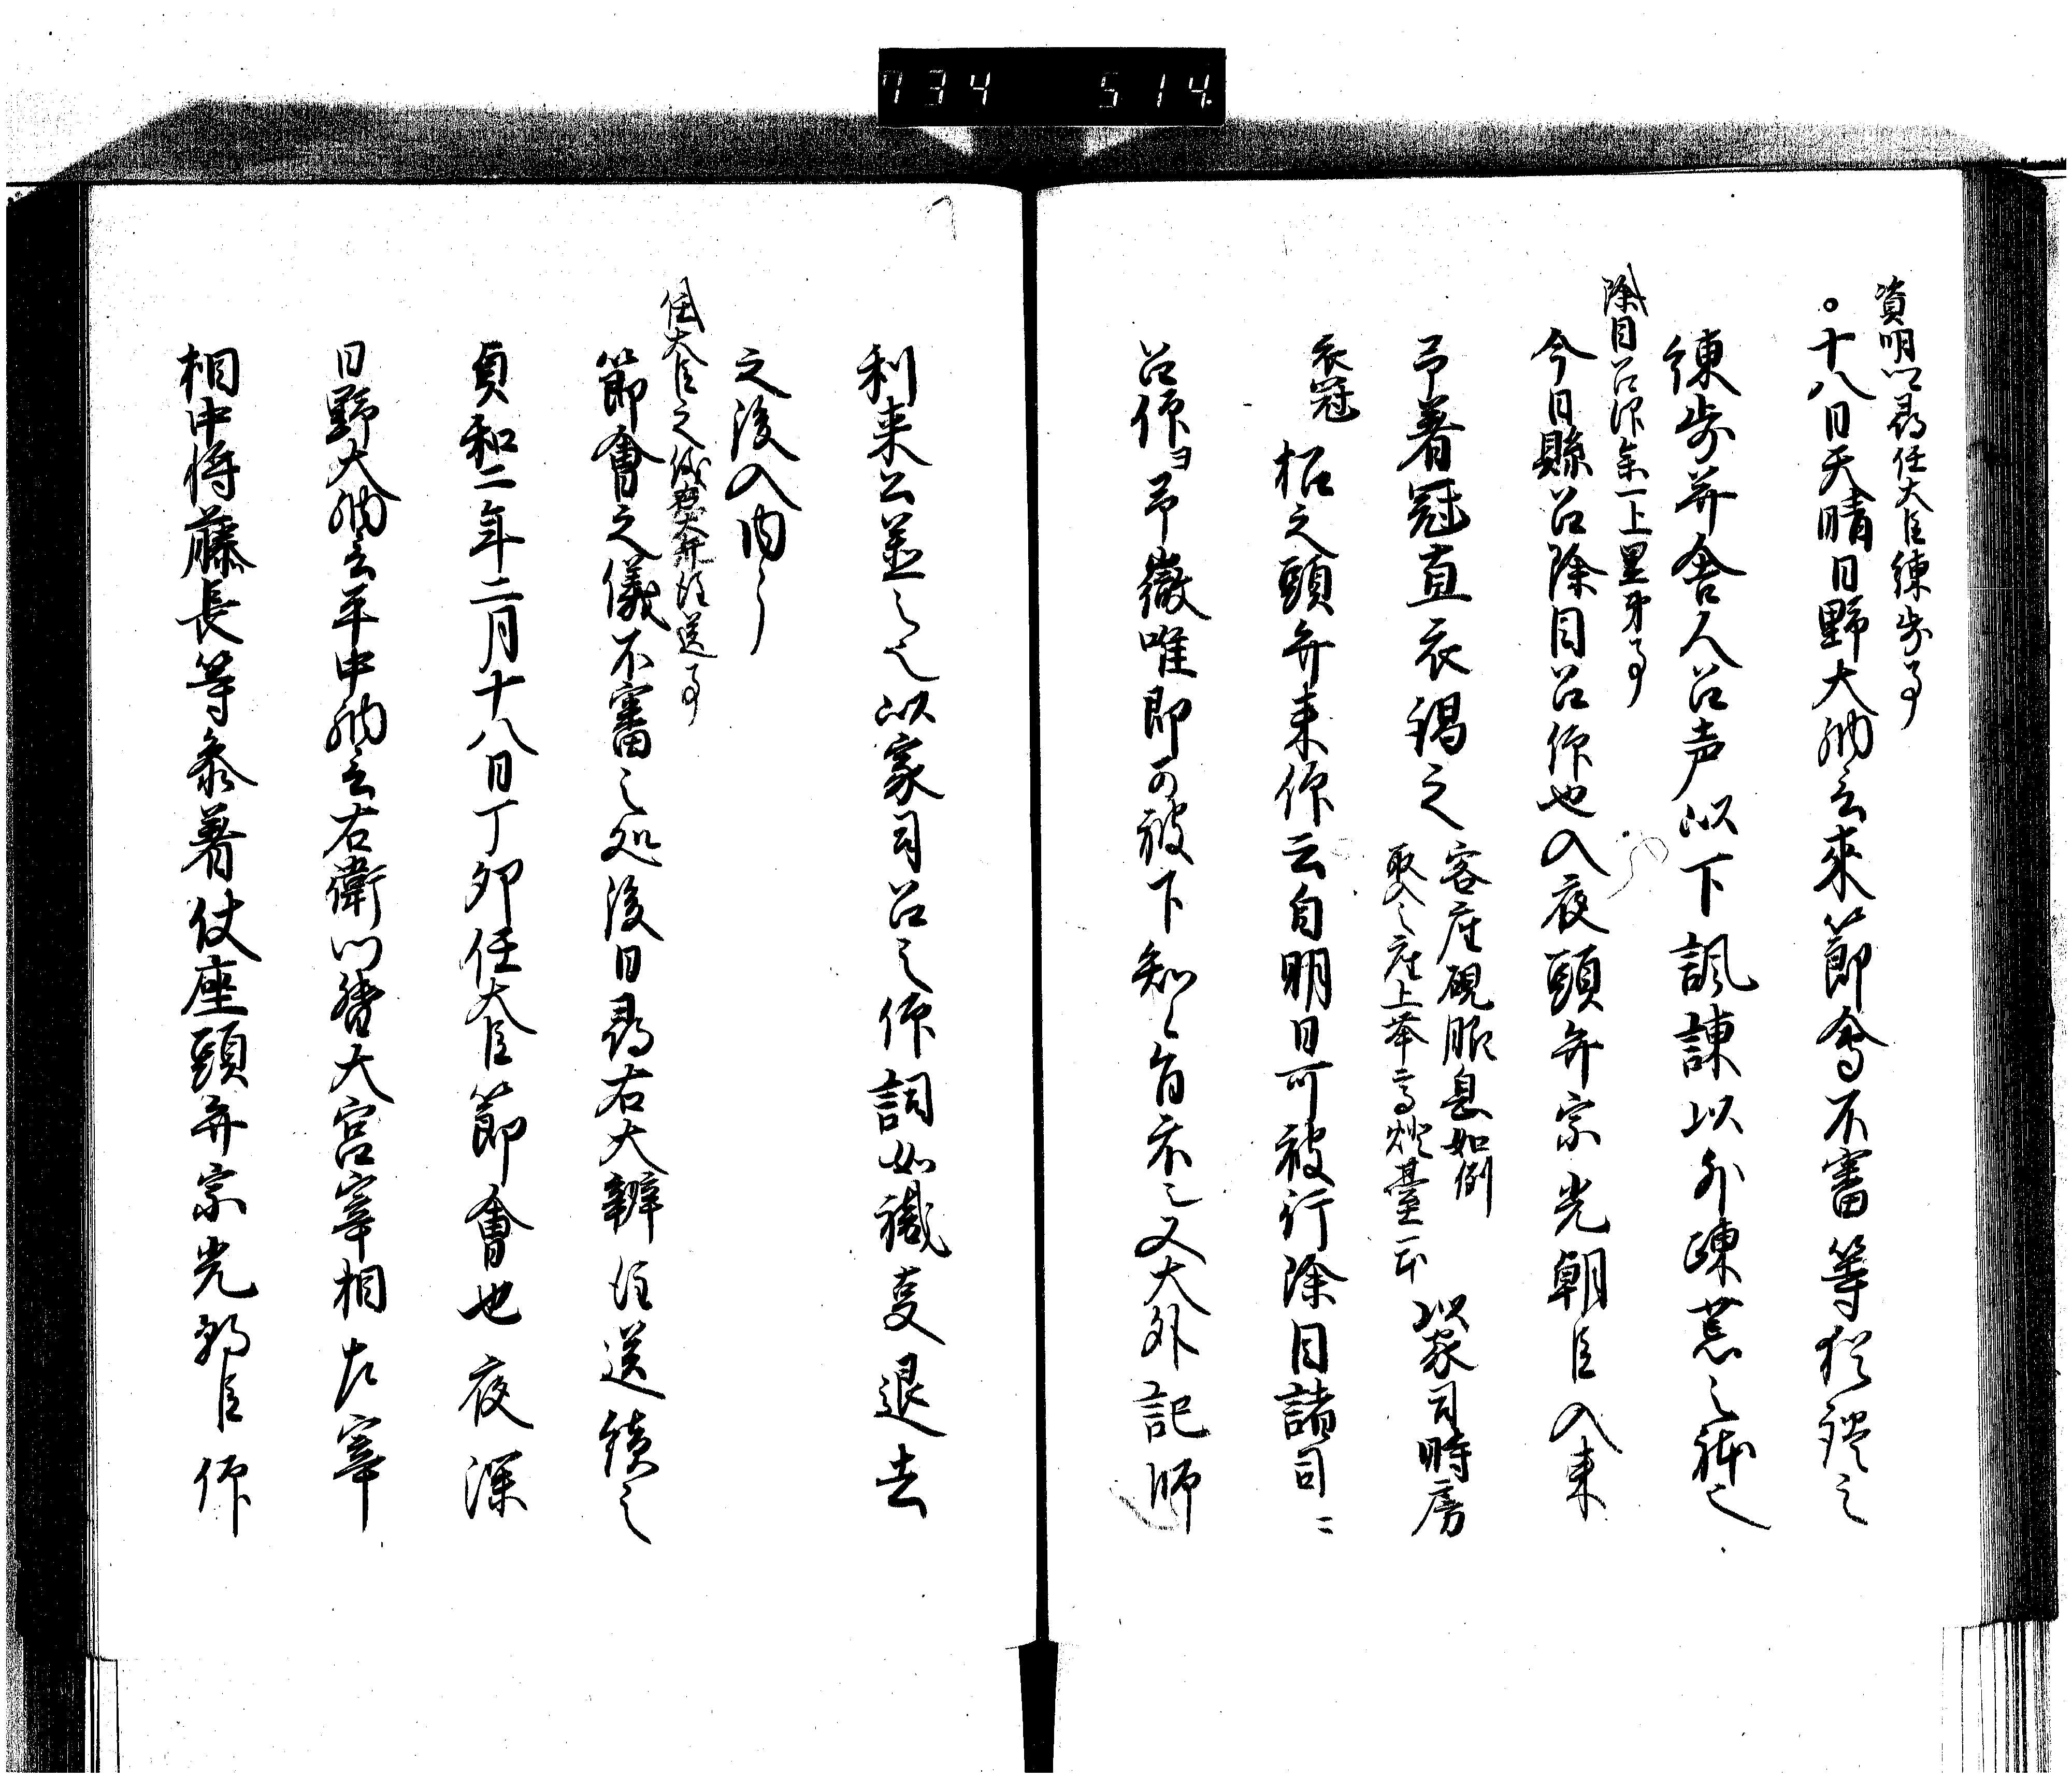 734 514
資明卿尋任大臣練歩事
。十八日天晴日野大納言來節會不審等猶證之
練歩并舎人召声以下諷諫以外疎荒之躰也
除目召仰余一上里第事
今日縣召除目召仰也入夜頭弁宗光朝臣入来
予着冠直衣謁之
客座硯脇息如例
取入之座上挙高燈臺一本
以家司時房
衣冠
招之頭弁来仰云自明日可被行除目諸司ニ
召仰ヨ予微唯即可被下知之旨示之又大外記師
利来公益之以家司召之仰詞如職事退去
之後入内
任大臣之儀右大弁注送事
節會之儀不審之処後日尋右大辨注送續之
貞和二年二月十八日丁卯任大臣節會也夜深
日野大納言平中納言右衛門督大宮宰相左宰
相中将藤長等参着仗座頭弁宗光朝臣仰